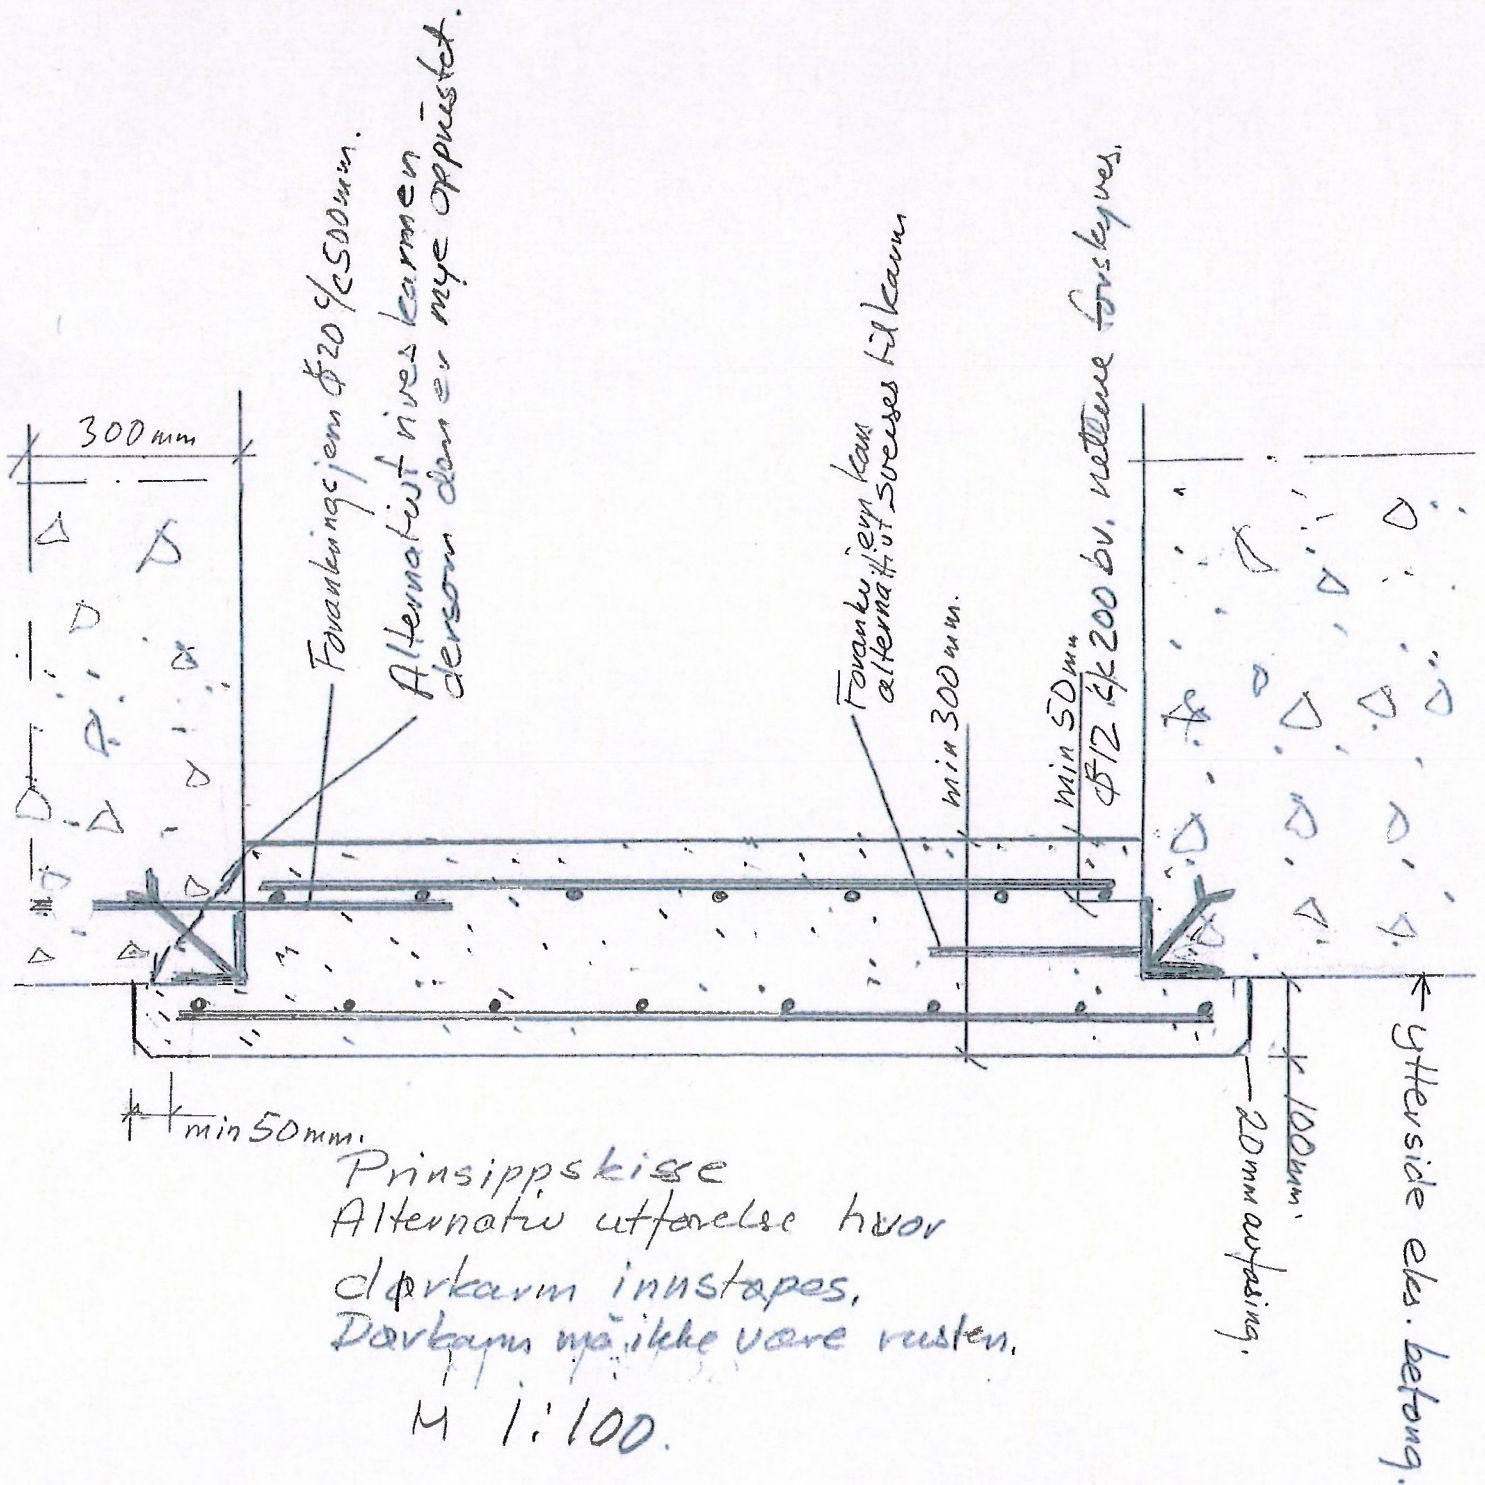 300mm
Forankringsjern Φ20 c/c500mm.
Alternativt rives karmen
dersom den er mye opprustet.
Forankr jern kan
alternativt sveises til karm
min 300mm.
min 50mm
Φ12 c/c 200 bv. nettene forskyves.
min 50mm.
100mm
20mm avfasing.
ytterside eks. betong.
Prinsippskisse
Alternativ utførelse hvor
dørkarm innstøpes.
Dørkarm må ikke være rusten.
M 1:100.